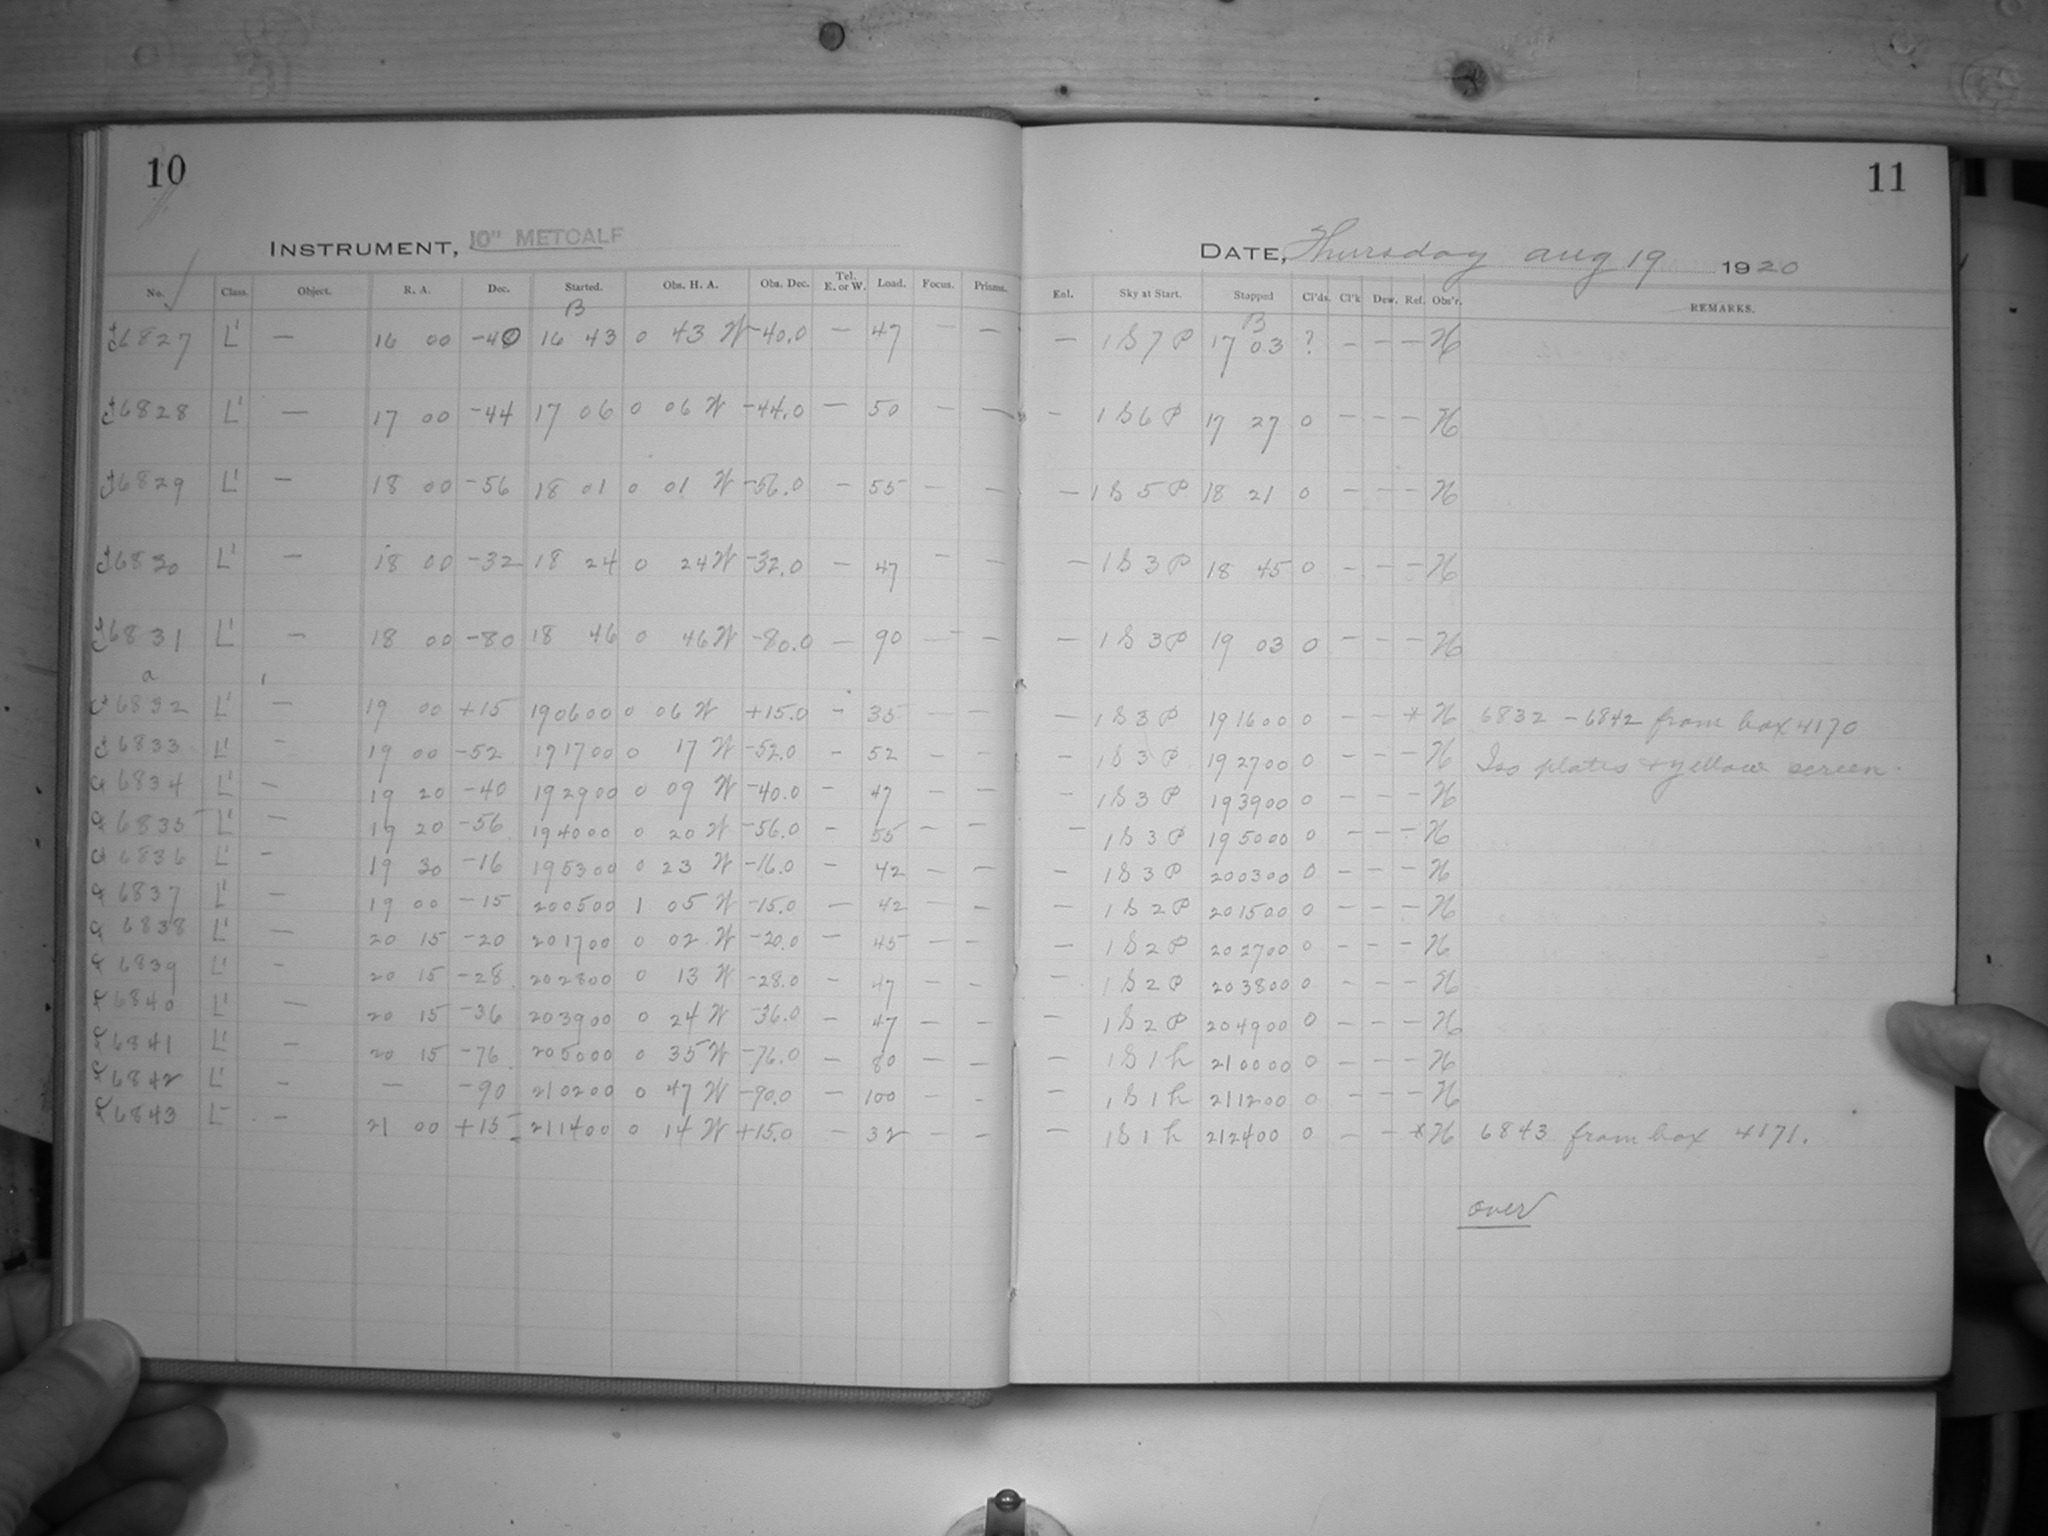 10
11
INSTRUMENT, 10" METCALF
DATE, Thursday Aug 19 1920
No. Class. Object. R. A. Dec. Started. Obs. H. A. Obs. Dec. Tel. E. or W. Load. Focus. Prisms. Enl. Sky at Start. Stopped Cl'ds. Cl'k Dew. Ref. Obs'r. REMARKS.
B B
6827 L' — 16 00 -40 16 43 0 43 W -40.0 — 47 — — — 1 S 7 P 17 03 ? — — — H
6828 L' — 17 00 -44 17 06 0 06 W -44.0 — 50 — — — 1 S 6 P 17 27 0 — — — H
6829 L' — 18 00 -56 18 01 0 01 W -56.0 — 55 — — — 1 S 5 P 18 21 0 — — — H
6830 L' — 18 00 -32 18 24 0 24 W -32.0 — 47 — — — 1 S 3 P 18 45 0 — — — H
6831 L' — 18 00 -80 18 46 0 46 W -80.0 — 90 — — — 1 S 3 P 19 03 0 — — — H
a
6832 L' — 19 00 +15 19 06 00 0 06 W +15.0 — 35 — — — 1 S 3 P 19 16 00 0 — — * H 6832 - 6842 from box 4170
6833 L' — 19 00 -52 19 17 00 0 17 W -52.0 — 52 — — — 1 S 3 P 19 27 00 0 — — — H Iso plates + yellow screen.
6834 L' — 19 20 -40 19 29 00 0 09 W -40.0 — 47 — — — 1 S 3 P 19 39 00 0 — — — H
6835 L' — 19 20 -56 19 40 00 0 20 W -56.0 — 55 — — — 1 S 3 P 19 50 00 0 — — — H
6836 L' — 19 30 -16 19 53 00 0 23 W -16.0 — 42 — — — 1 S 3 P 20 03 00 0 — — — H
6837 L' — 19 00 -15 20 05 00 1 05 W -15.0 — 42 — — — 1 S 2 P 20 15 00 0 — — — H
6838 L' — 20 15 -20 20 17 00 0 02 W -20.0 — 45 — — — 1 S 2 P 20 27 00 0 — — — H
6839 L' — 20 15 -28 20 28 00 0 13 W -28.0 — 47 — — — 1 S 2 P 20 38 00 0 — — — H
6840 L' — 20 15 -36 20 39 00 0 24 W -36.0 — 47 — — — 1 S 2 P 20 49 00 0 — — — H
6841 L' — 20 15 -76 20 50 00 0 35 W -76.0 — 80 — — — 1 S 1 h 21 00 00 0 — — — H
6842 L' — — -90 21 02 00 0 47 W -90.0 — 100 — — — 1 S 1 h 21 12 00 0 — — — H
6843 L — 21 00 +15 21 14 00 0 14 W +15.0 — 32 — — — 1 S 1 h 21 24 00 0 — — * H 6843 from box 4171.
over